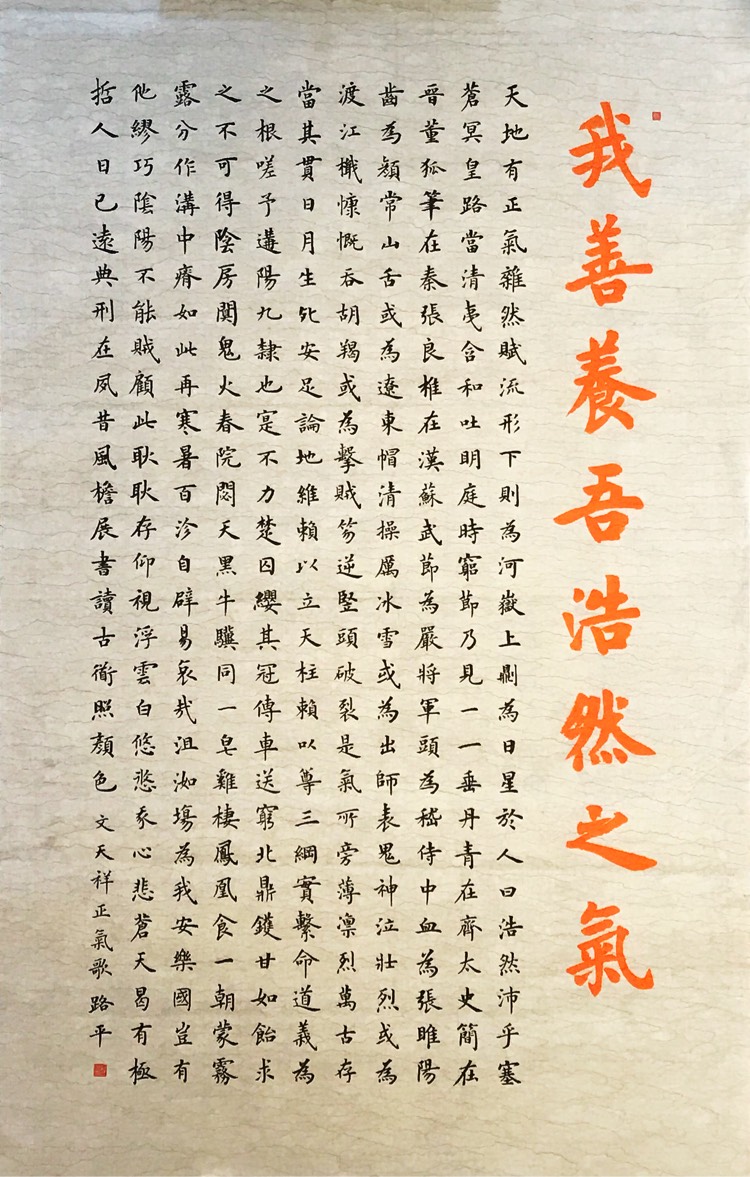 我善養吾浩然之氣
天地有正氣雜然賦流形下則為河嶽上則為日星於人曰浩然沛乎塞
蒼冥皇路當清夷含和吐明庭時窮節乃見一一垂丹青在齊太史簡在
晉董狐筆在秦張良椎在漢蘇武節為嚴將軍頭為嵇侍中血為張睢陽
齒為顏常山舌或為遼東帽清操厲冰雪或為出師表鬼神泣壯烈或為
渡江檝慷慨吞胡羯或為擊賊笏逆豎頭破裂是氣所旁薄凜烈萬古存
當其貫日月生死安足論地維賴以立天柱賴以尊三綱實繫命道義為
之根嗟予遘陽九隸也寔不力楚囚纓其冠傳車送窮北鼎鑊甘如飴求
之不可得陰房闃鬼火春院閟天黑牛驥同一皂雞棲鳳凰食一朝蒙霧
露分作溝中瘠如此再寒暑百沴自辟易哀哉沮洳場為我安樂國豈有
他繆巧陰陽不能賊顧此耿耿存仰視浮雲白悠悠我心悲蒼天曷有極
哲人日已遠典刑在夙昔風檐展書讀古道照顏色 文天祥正氣歌路平